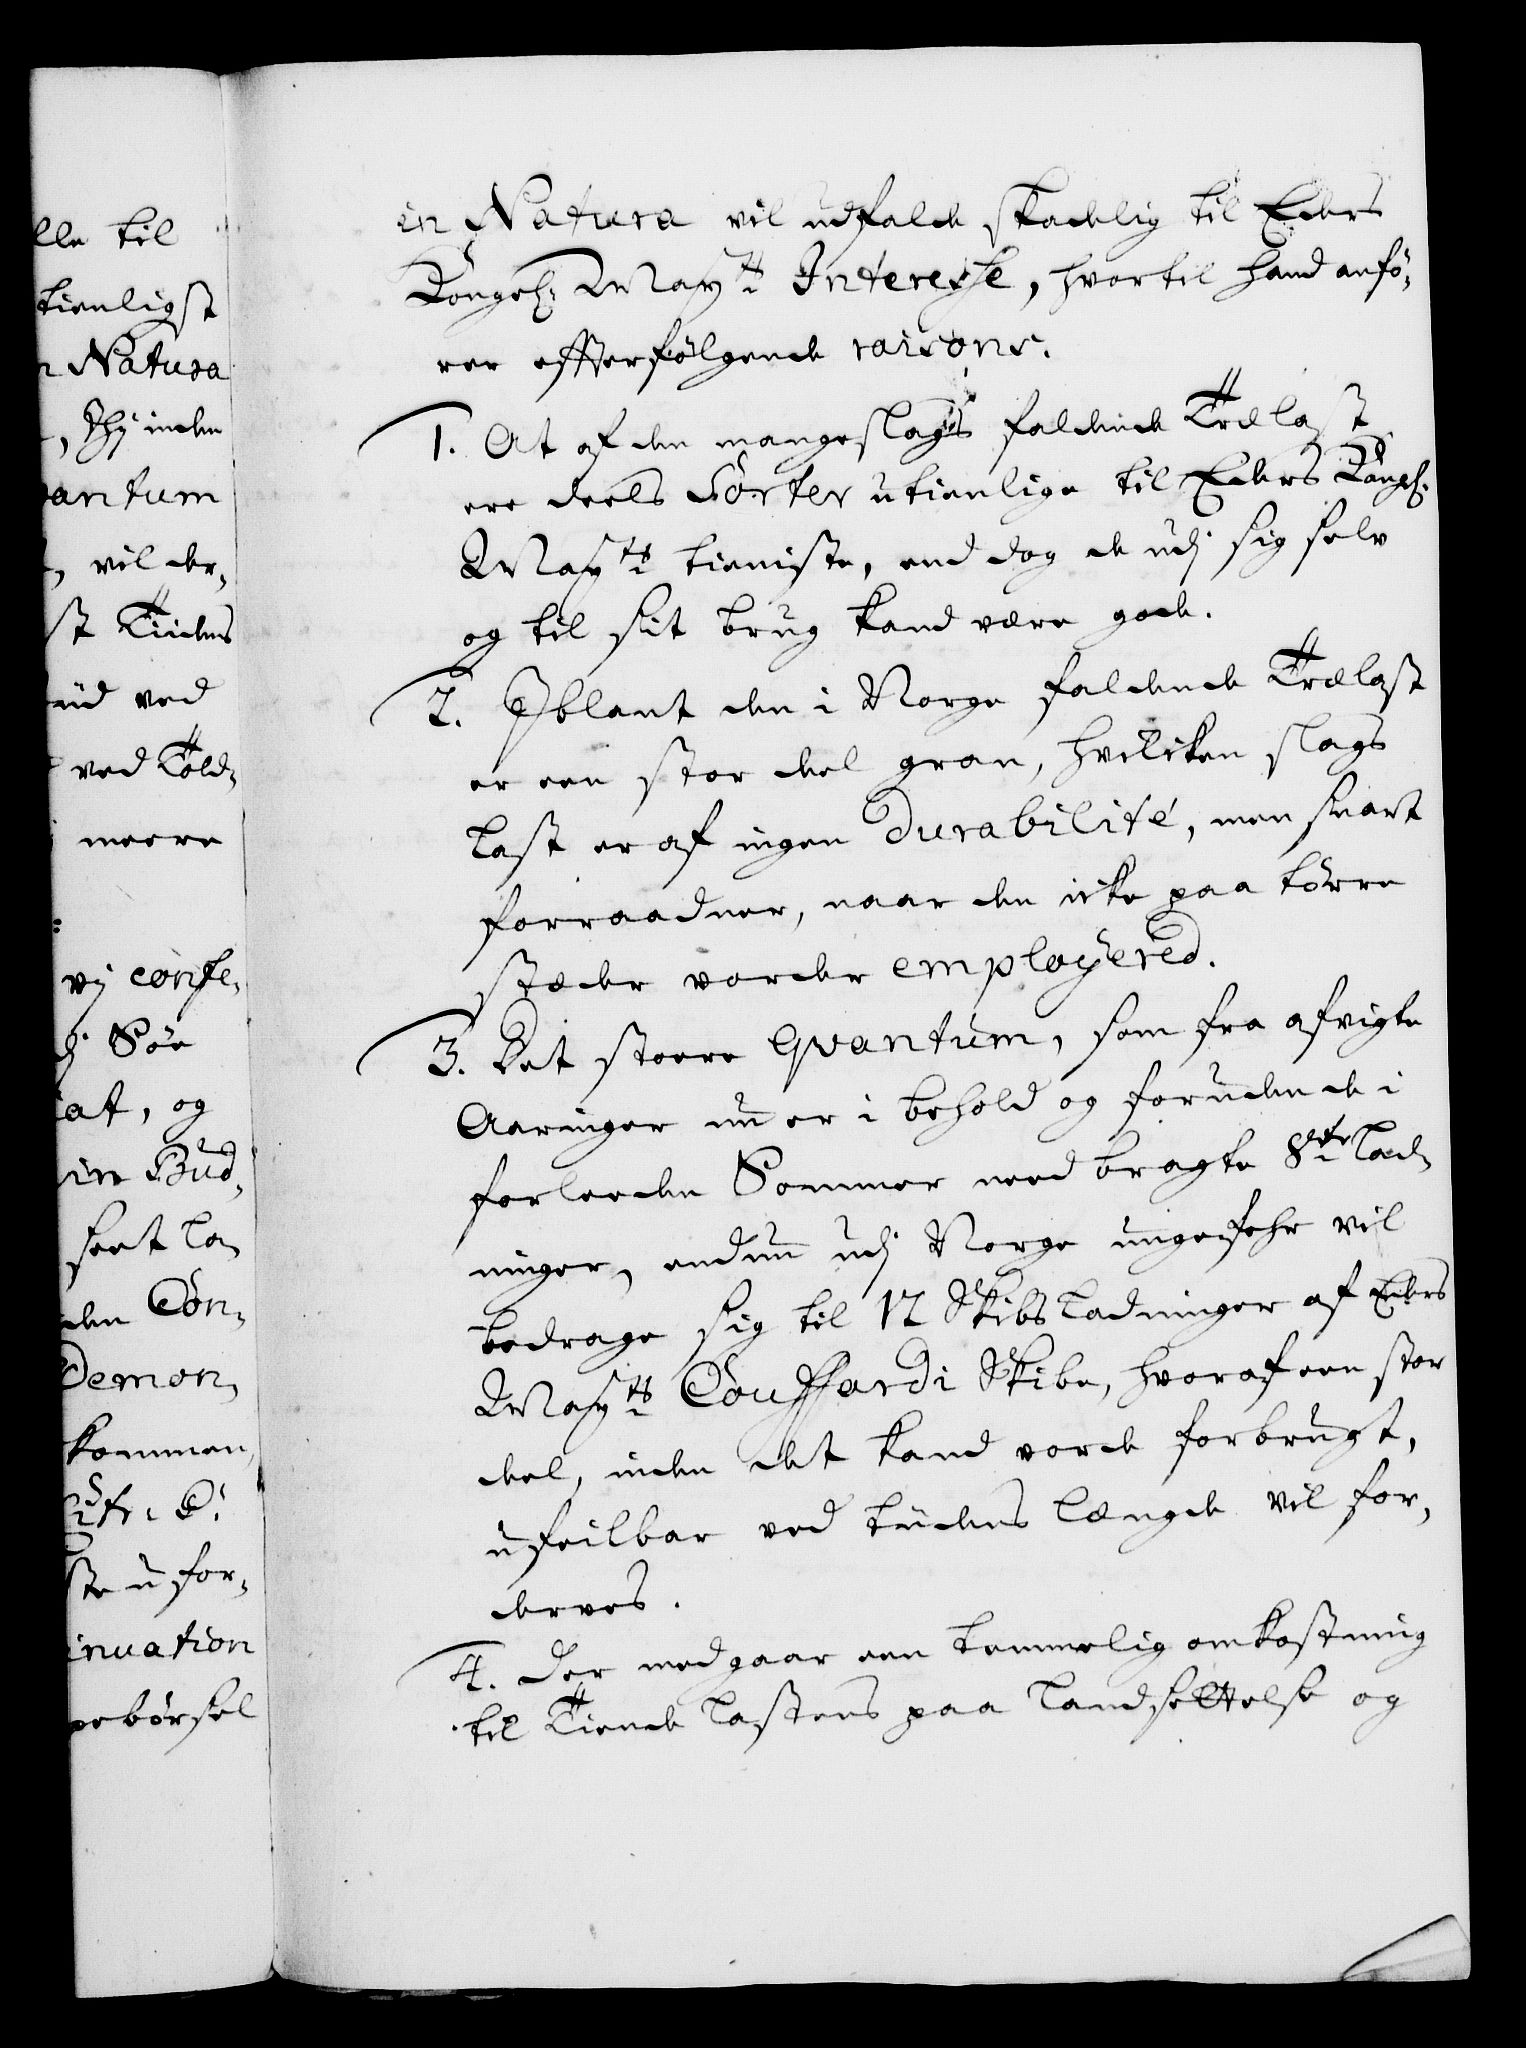 lle til
tienligst
n Natura
, Thj inden
antum
, vil der,
st Tiidens
ud ved
ved Told,
meere
vj confe,
dj Søe
at, og
in Bud,
seet la,
den Con,
Demon,
kommen,
ste ufor,
inuation
pebörsel
in Natura vil udfalde skadelig til Eders
Kongel: Mayts Interesse, hvortil hand anfö,
rer effterfölgende raisons.
1. At af den mangeslags faldende Trælast
ere deels Sorter utienlige til Eders Kongl:
Mayts tieniste, end dog de udj sig selv
og til sit brug kand være gode.
2. Iblant den i Norge faldende Trælast
er een stor deel gran, hvilcken slags
last er af ingen Durabilité, men snart
forraadner, naar den icke paa törre
stæder vorder employered.
3. Det stoere Qvantum, som fra afvigte
Aaringer nu er i behold og foruden de i
forleeden Sommer need bragte 8te lad,
ninger, endnu udj Norge ungefehr vil
bedrage sig til 12 Skibsladninger af Eders
Mayts Couffardi Skibe, hvoraf een stor
deel, inden det kand vorde forbrugt,
ufeilbar ved tiidens længde vil for,
derves.
4. Der medgaar een temmelig omkostning
til Tiende lastens paa landsettelse og